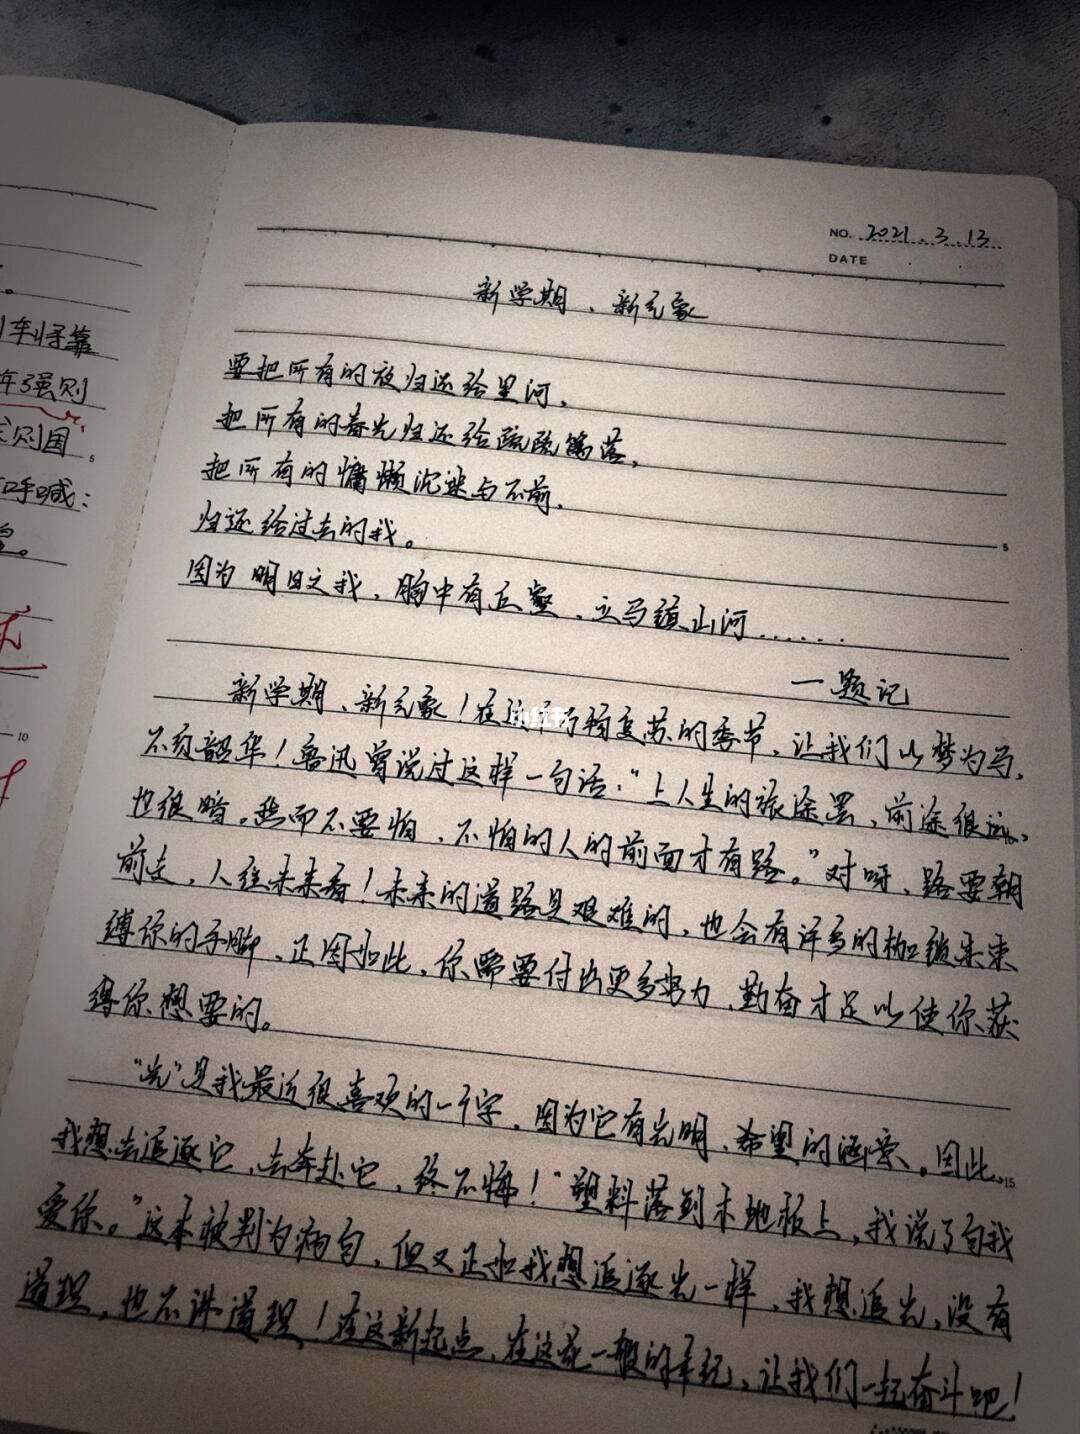 车将靠
年强则
则国
呼喊：
NO. 2021.3.13
DATE
新学期、新气象
要把所有的夜归还给星河，
把所有的春光归还给疏疏篱落，
把所有的慵懒沉迷与不前，
归还给过去的我。
因为明日之我，胸中有丘壑，立马镇山河......
一题记
新学期、新气象！在这万物复苏的季节，让我们以梦为马，
不负韶华！鲁迅曾说过这样一句话：“上人生的旅途罢，前途很远，
也很暗。然而不要怕，不怕的人的前面才有路。”对呀，路要朝
前走，人往未来看！未来的道路是艰难的，也会有许多的枷锁来束
缚你的手脚，正因如此，你需要付出更多努力，勤奋才足以使你获
得你想要的。
“光”是我最近很喜欢的一个字，因为它有光明、希望的涵义。因此，
我想去追逐它，去奔赴它，终不悔！“塑料落到木地板上，我说了句我
爱你。”这本被判为病句，但又正如我想追逐光一样，我想追光，没有
道理，也不讲道理！在这新起点，在这花一般的年纪，让我们一起奋斗吧！
5
10
5
15
小红书